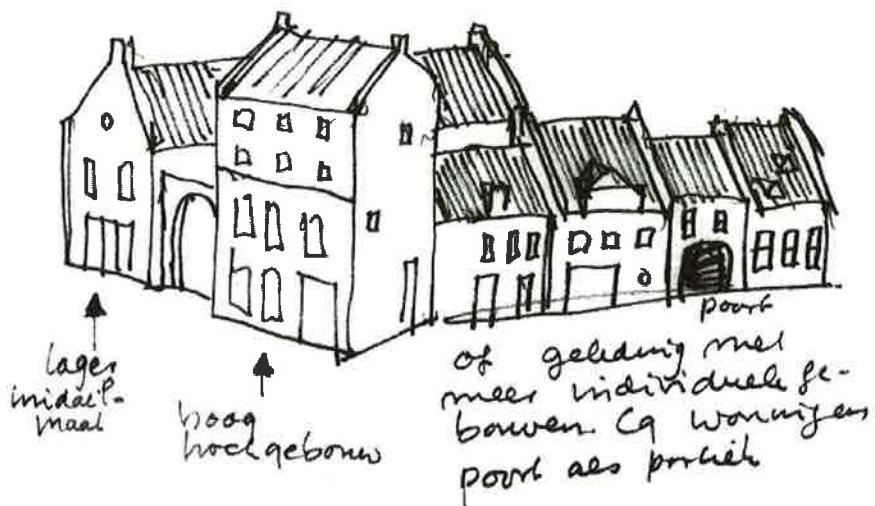 poort
lager
middel-
maat
hoog
hoekgebouw
of geleding met
meer individuele ge-
bouwen. Cq woningen
poort als portiek